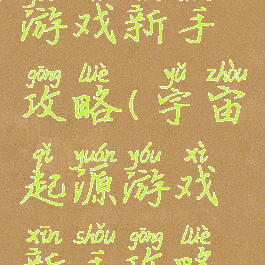 游戏新手
gōng lüè yǔ zhòu
攻略(宇宙
qǐ yuán yóu xì
起源游戏
xīn shǒu gōng lüè
新手攻略